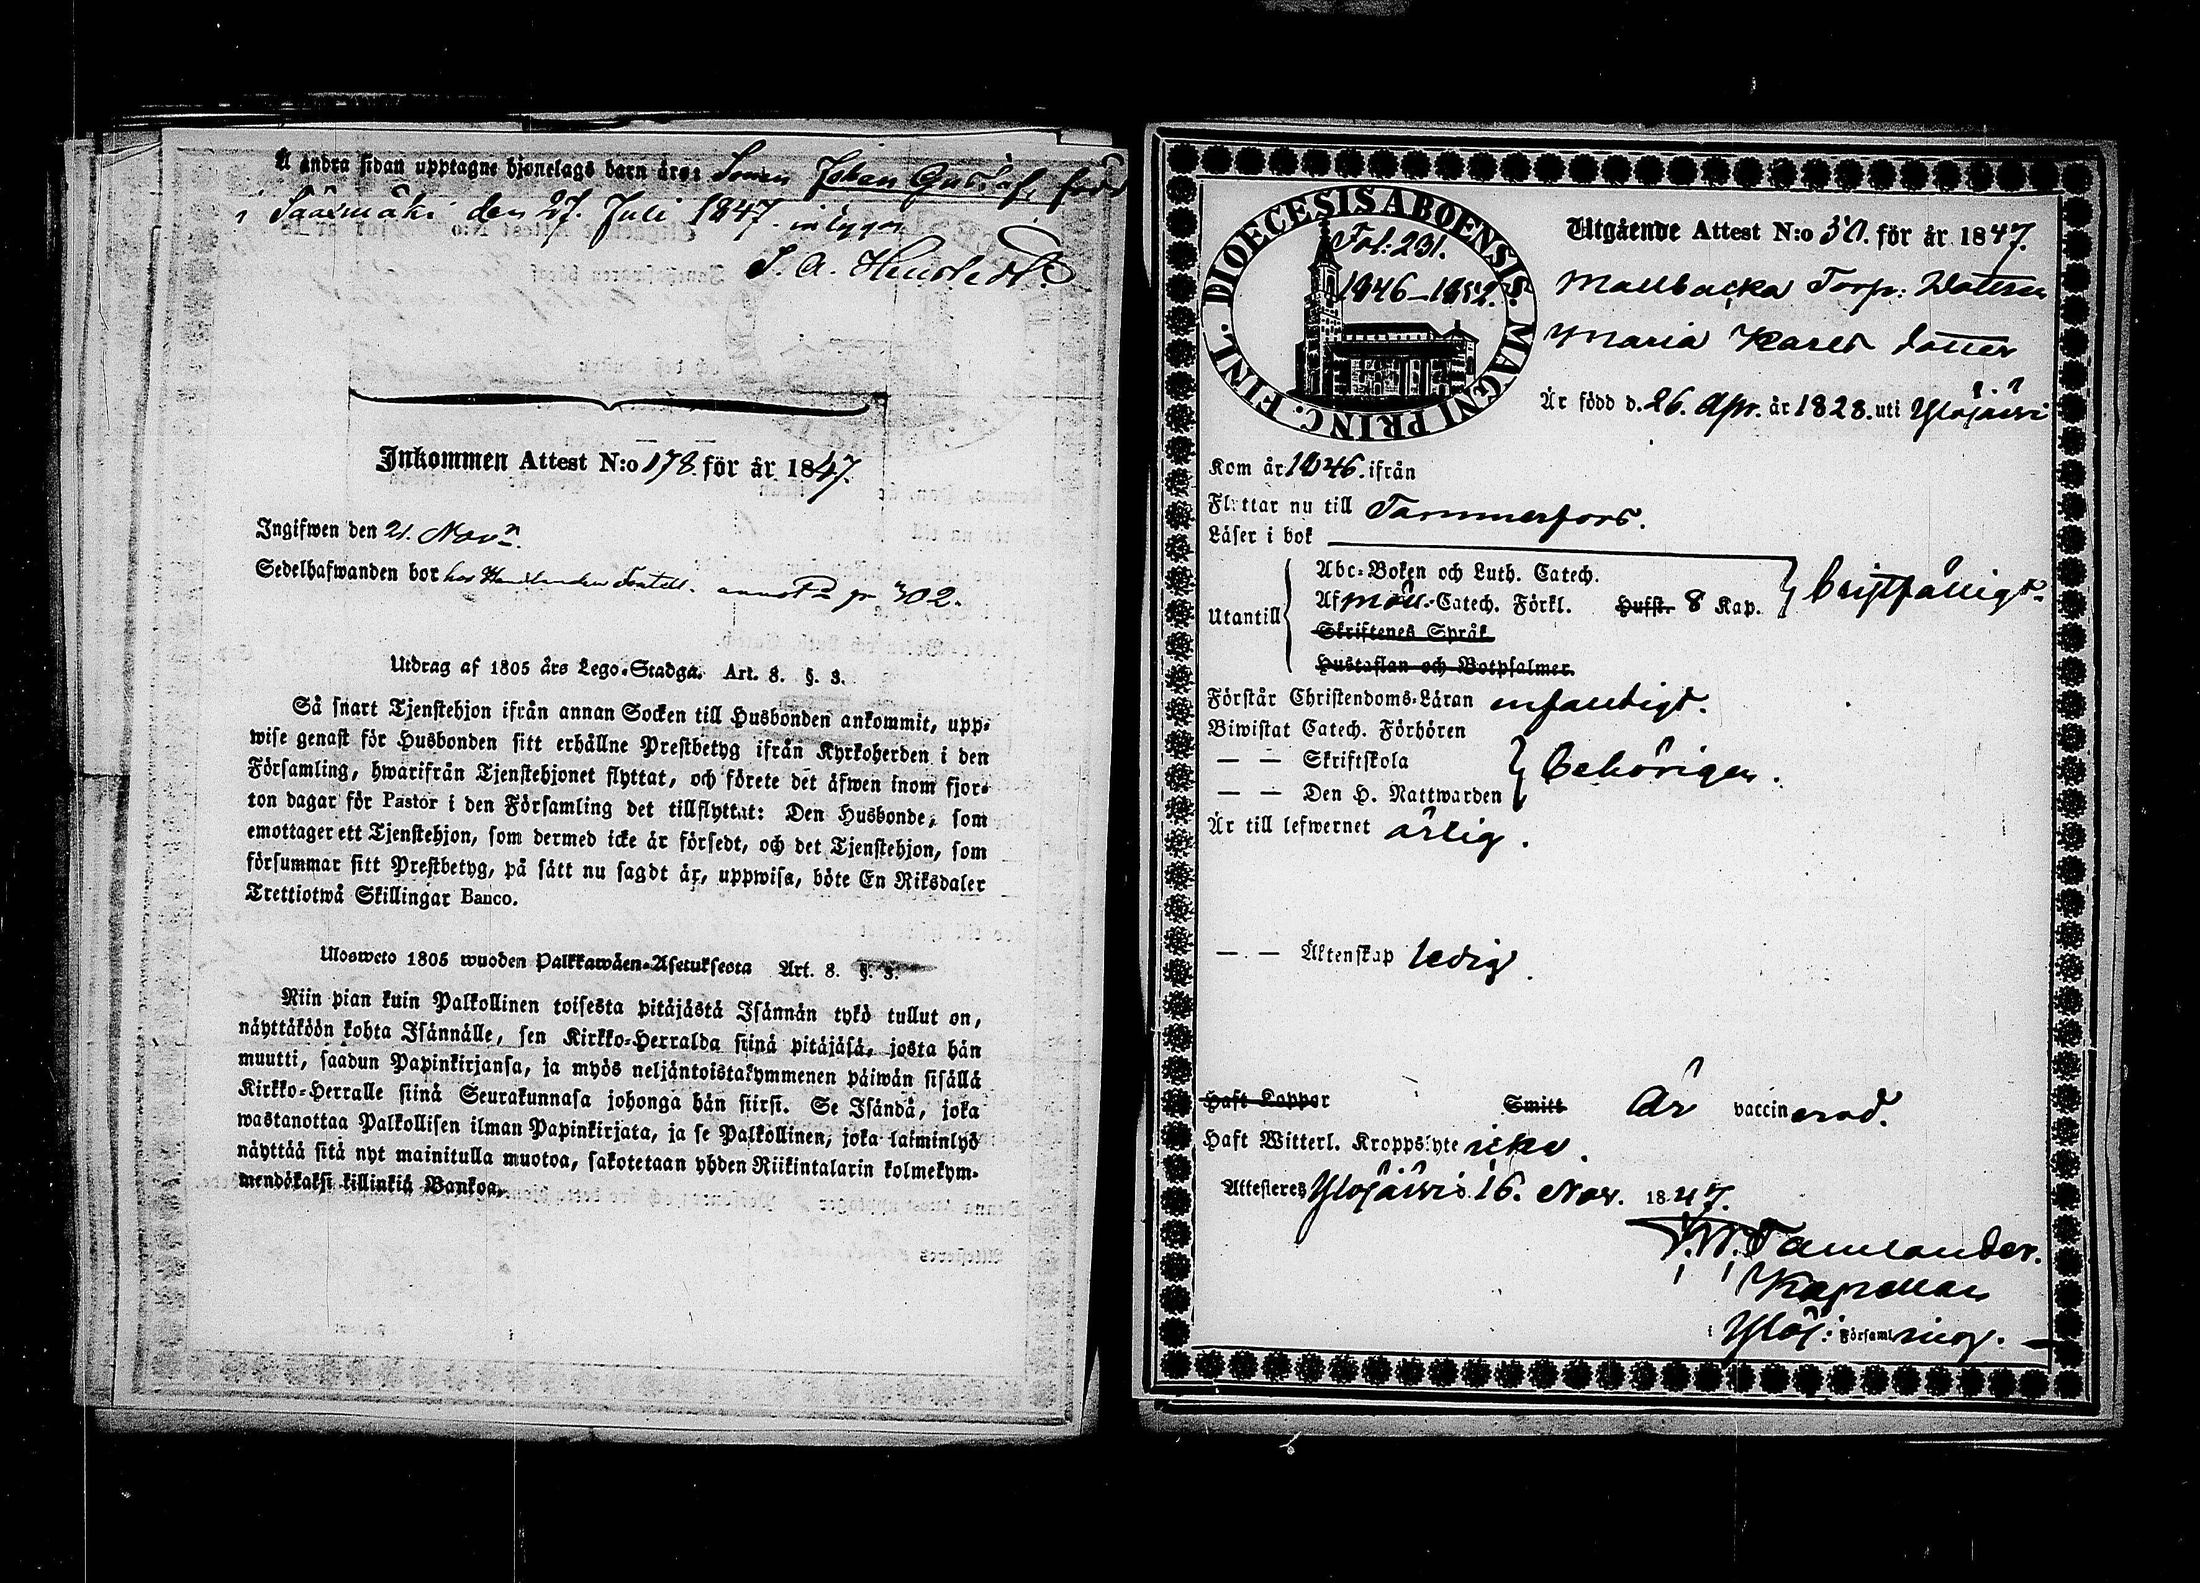 Å andra sidan upptagne hjonelags barn äro: Sonen Johan Gustaf, född
i Sääxmäki den 27. Juli 1847. intygar
Inkommen Attest N:o 178. för år 1847.
Ingifwen den 21. Novr.
Sedelhafwanden bor hos Handlanden 302.
Utdrag af 1805 års Lego-Stadga. Art. 8. §. 3.
Så snart Tjenstehjon ifrån annan Socken till Husbonden ankommit, upp-
wise genast för Husbonden sitt erhållne Prestbetyg ifrån Kyrkoherden i den
Församling, hwarifrån Tjenstehjonet flyttat, och förete det äfwen inom fjor-
ton dagar för Pastor i den Församling det tillflyttat: Den Husbonde, som
emottager ett Tjenstehjon, som dermed icke är försedt, och det Tjenstehjon, som
försummar sitt Prestbetyg, på sätt nu sagdt är, uppwisa, böte En Riksdaler
Trettiotwå Skillingar Banco.
Ulosweto 1805 wuoden Palkkawäen-Asetuksesta Art. 8. §. 3.
Niin pian kuin Palkollinen toisesta pitäjästä Isännän tykö tullut on,
näyttäköön kohta Isännälle, sen Kirkko-Herralda siinä pitäjäsä, josta hän
muutti, saadun Papinkirjansa, ja myös neljäntoistakymmenen päiwän sisällä
Kirkko-Herralle siinä Seurakunnasa johonga hän siirsi. Se Isändä, joka
wastanottaa Palkollisen ilman Papinkirjata, ja se Palkollinen, joka laiminlyö
näyttää sitä nyt mainitulla muotoa, sakotetaan yhden Riikintalarin kolmekym-
mendäkaksi killinkiä Bankoa.
DIOECESIS ABOENSIS. MAGNI PRINC. FINL.
Fol: 231.
1846-1852.
Utgående Attest N:o 50. för år 1847.
Mallbacka Torp: Dottren
Maria Karls dotter
Är född d. 26. Apr. år 1828. uti Ylöjärvi
Kom år 1846. ifrån
Flyttar nu till Tammerfors.
Läser i bok
Utantill
Abc-Boken och Luth. Catech.
Af Möll. Catech. Förkl. Hufst. 8 Kap.
Skriftenes Språk
Hustaflan och Botpsalmer.
bristfälligt.
Förstår Christendoms-Läran enfaldigt.
Biwistat Catech. Förhören
— — Skriftskola
— — Den H. Nattwarden
behörigen.
Är till lefwernet ärlig.
— — Äktenskap ledig.
Haft Koppor Smitt Är vaccinerad.
Haft Witterl. Kroppslyte icke.
Attesteres Ylöjärvi d. 16. Nov. 1847.
Tamlander.
Kapellan
i Ylöj: Församling.